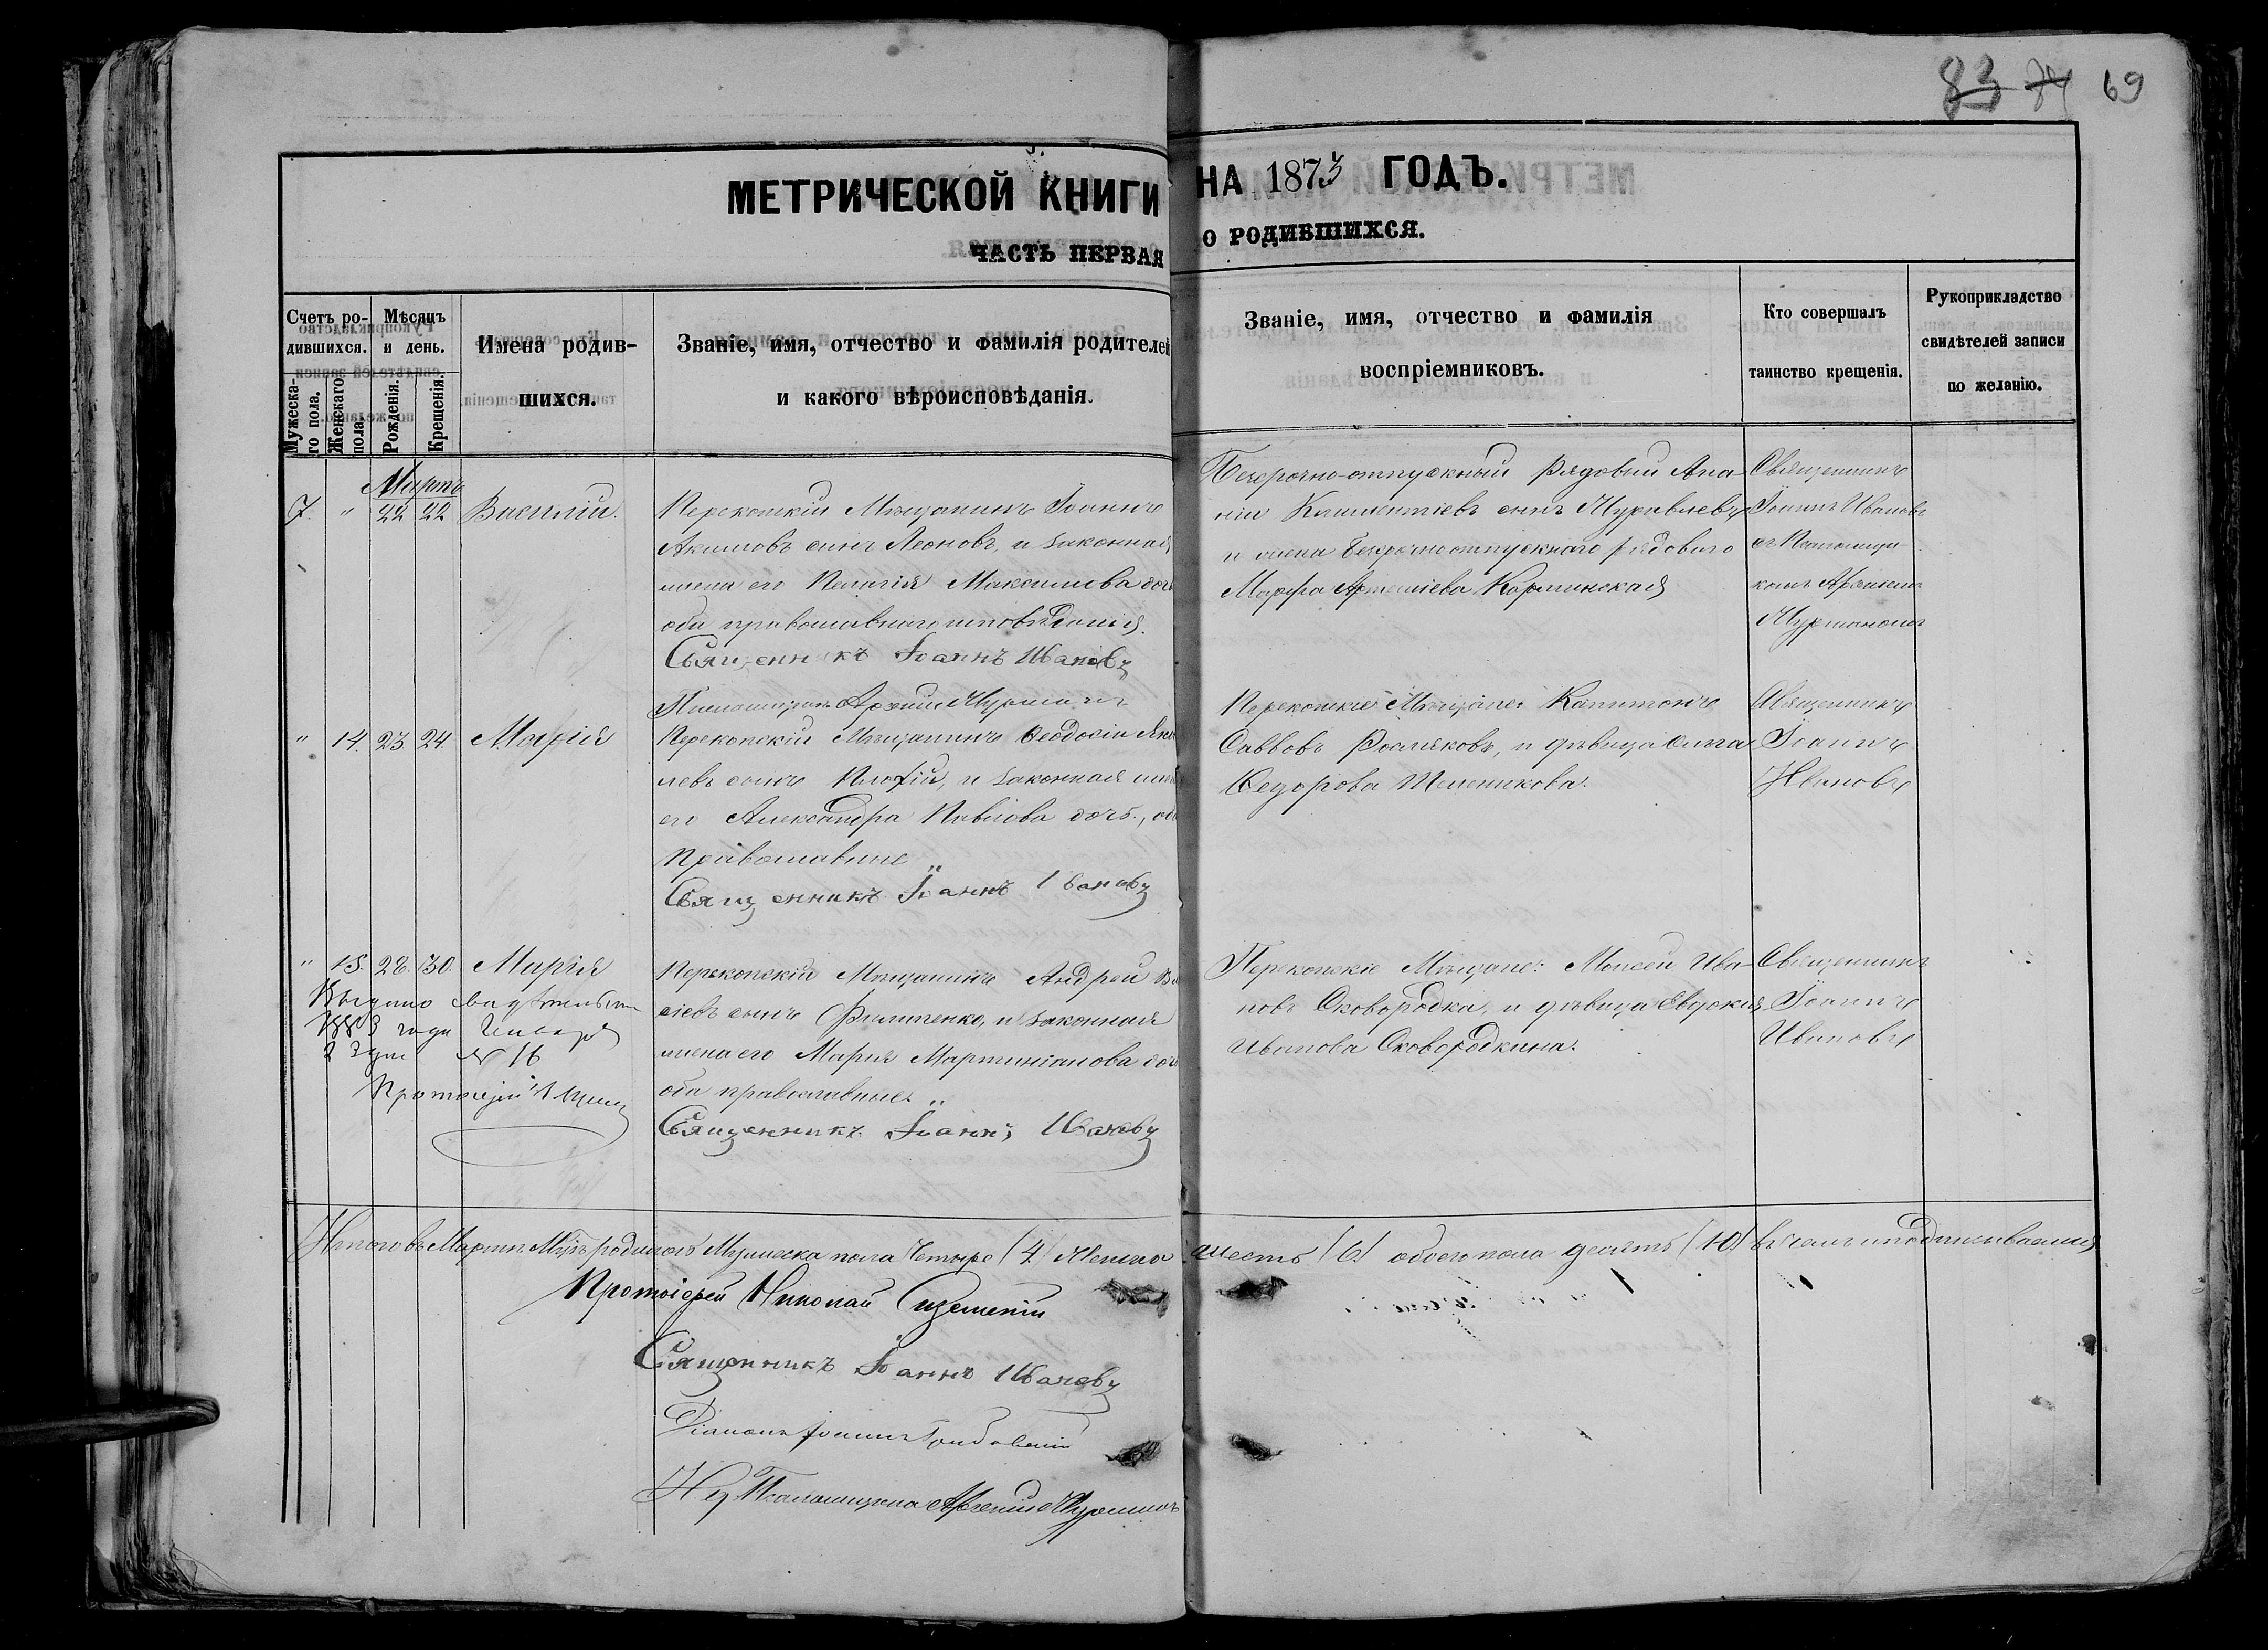 83 74 69
МЕТРИЧЕСКОЙ КНИГИ НА 1873 ГОДЪ.
ЧАСТЬ ПЕРВАЯ О РОДИВШИХСЯ.
Счетъ ро-
дившихся.
Мужеска-
го пола.
Женскаго
пола.
Мѣсяцъ
и день.
Рожденія.
Крещенія.
Имена родив-
шихся.
Званіе, имя, отчество и фамилія родителей
и какого вѣроисповѣданія.
Званіе, имя, отчество и фамилія
воспріемниковъ.
Кто совершалъ
таинство крещенія.
Рукоприкладство
свидѣтелей записи
по желанію.
Мартъ
7. " 22 22 Василій.
Перекопскій Мѣщанинъ Іоаннъ
Акимовъ сынъ Леоновъ, и законная
жена его Пелагія Максимова доч
оба православнаго исповѣданія.
Священникъ Іоаннъ Ивановъ
Безсрочно-отпускный рядовый Ана-
ній Климентіевъ сынъ Журавлевъ
и жена безсрочно отпускнаго рядового
Марфа
Священникъ
Іоаннъ Ивановъ
съ Псаломщи-
комъ Арсеніем
" 14. 23. 24. Марія
Перекопскій Мѣщанинъ Ѳеодосій Яко
левъ сынъ и законная жен
его Александра Павлова дочь, об
Православные
Священникъ Іоаннъ Ивановъ
Перекопскіе Мѣщане: Капитонъ
Саввовъ и дѣвица Ольга
Ѳедорова
Священникъ
Іоаннъ
Ивановъ
" 15. 28. 30. Марія
Выдано свидѣтельство
1883 года Января
№ 16
Протоіерей
Перекопскій Мѣщанинъ Андрей Ва
сынъ и законная
жена его Марія Мартиніанова доч
оба православные
Священникъ Іоаннъ Ивановъ
Перекопскіе Мѣщане: Моисей Ива-
новъ Сковородка, и дѣвица Евдокія
Иванова Сковородкина.
Священникъ
Іоаннъ
Ивановъ
Итого въ Мартѣ Мцѣ родилось Мужеска пола Четыре (4) Женска шесть (6) обоего пола десять (10) въ чемъ и подписываемся
Протоіерей Николай
Священникъ Іоаннъ Ивановъ
Діаконъ Іоаннъ
Псаломщика Арсеній